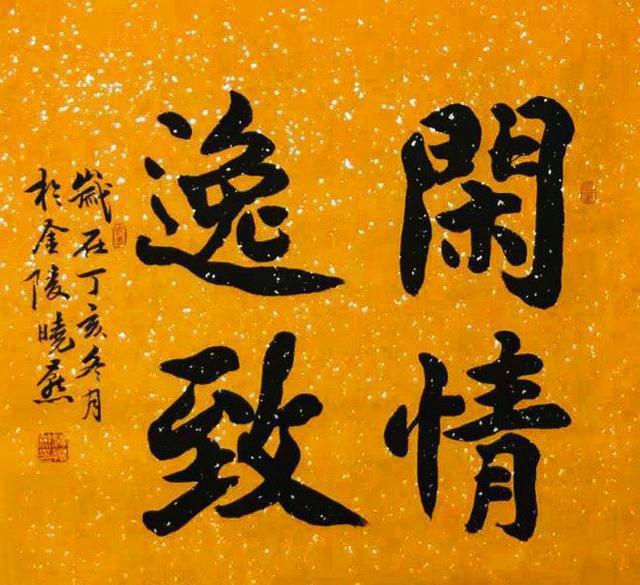 閑情
逸致
歲在丁亥冬月
於金陵曉燕